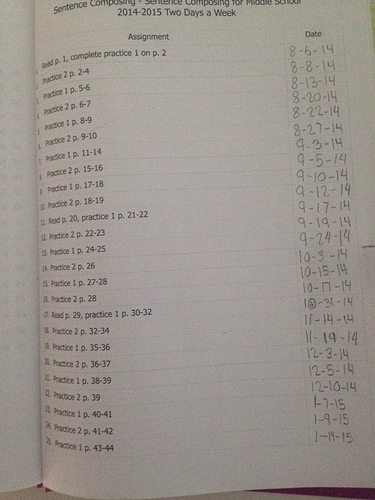 Sentence Composing - Sentence Composing for Middle School
2014-2015 Two Days a Week
Assignment Date
1. Read p. 1, complete practice 1 on p. 2 8-6-14
2. Practice 2 p. 2-4 8-8-14
3. Practice 1 p. 5-6 8-13-14
4. Practice 2 p. 6-7 8-20-14
5. Practice 1 p. 8-9 8-22-14
6. Practice 2 p. 9-10 8-27-14
7. Practice 1 p. 11-14 9-3-14
8. Practice 2 p. 15-16 9-5-14
9. Practice 1 p. 17-18 9-10-14
10. Practice 2 p. 18-19 9-12-14
11. Read p. 20, practice 1 p. 21-22 9-17-14
12. Practice 2 p. 22-23 9-19-14
13. Practice 1 p. 24-25 9-24-14
14. Practice 2 p. 26 10-3-14
15. Practice 1 p. 27-28 10-15-14
16. Practice 2 p. 28 10-17-14
17. Read p. 29, practice 1 p. 30-32 10-31-14
18. Practice 2 p. 32-34 11-14-14
19. Practice 1 p. 35-36 11-19-14
20. Practice 2 p. 36-37 12-3-14
21. Practice 1 p. 38-39 12-5-14
22. Practice 2 p. 39 12-10-14
23. Practice 1 p. 40-41 1-7-15
24. Practice 2 p. 41-42 1-9-15
25. Practice 1 p. 43-44 1-14-15